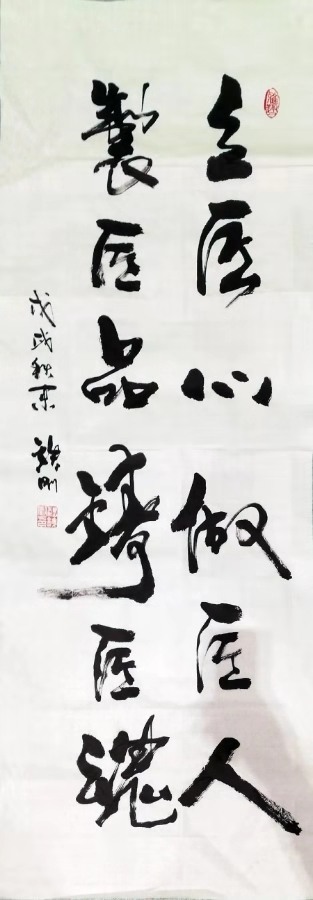 立匠心做匠人
製匠品鑄匠魂
戊戌秋末